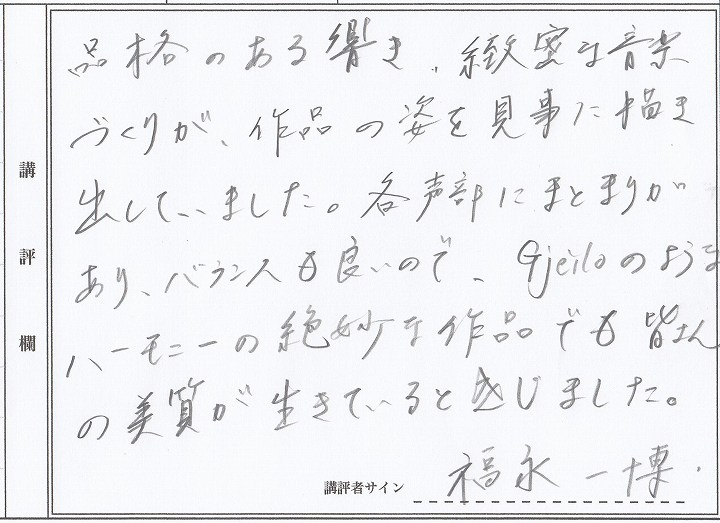 講評欄
品格のある響き、緻密な音楽
づくりが、作品の姿を見事に描き
出していました。各声部にまとまりが
あり、バランスも良いので、Gjeiloのような
ハーモニーの絶妙な作品でも皆さん
の美質が生きていると感じました。
講評者サイン 福永一博